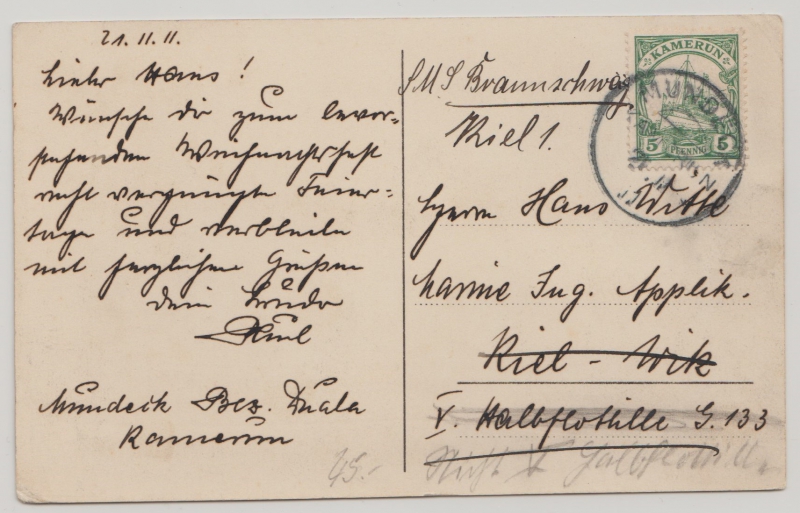 21.11.11.
Lieber Hans!
Wünsche dir zum bevor-
stehenden Weihnachtsfest
recht vergnügte Feier-
tage und verbleibe
mit herzlichen Grüßen
dein Bruder
Mundeck Bez. Duala
Kamerun
45.-
KAMERUN
5 PFENNIG 5
MUNDECK
S.M.S Braunschweig
Kiel 1.
Herrn Hans Witte
Marine Ing. Applik.
Kiel-Wik
V. Halbflottille G. 133
Nicht V Halbflottille